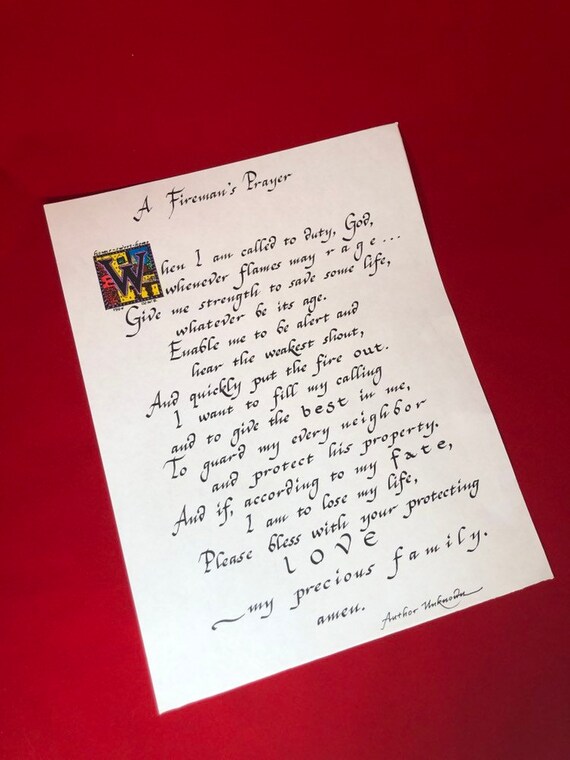 A Fireman's Prayer
When I am called to duty, God,
whenever flames may rage...
Give me strength to save some life,
whatever be its age.
Enable me to be alert and
hear the weakest shout,
And quickly put the fire out.
I want to fill my calling
and to give the best in me,
To guard my every neighbor
and protect his property.
And if, according to my fate,
I am to lose my life,
Please bless with your protecting
LOVE
my precious family.
amen.
Author Unknown